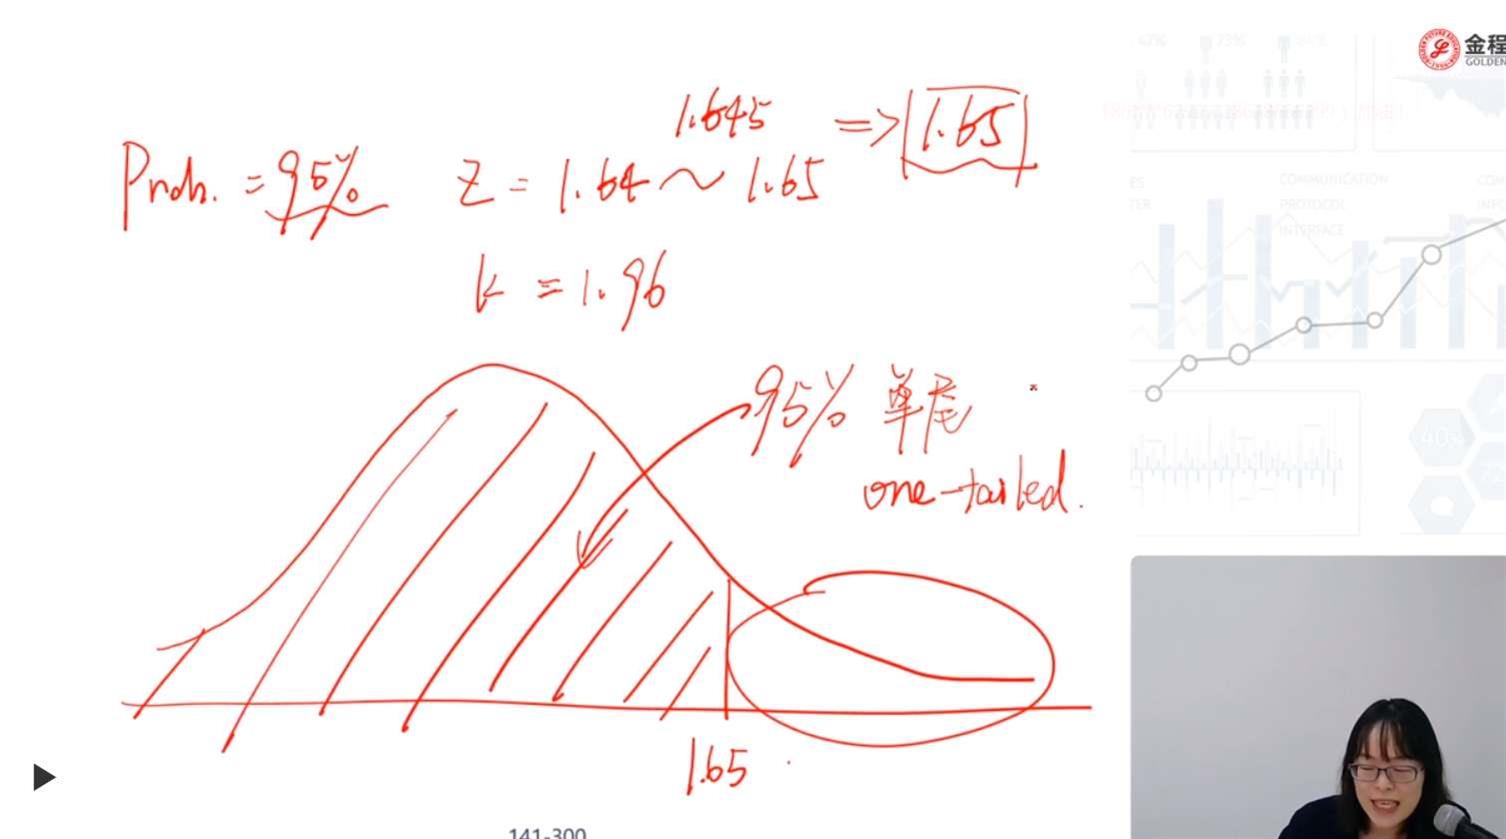 金程
GOLDEN
1.645 => 1.65
Prob. = 95% Z = 1.64 ~ 1.65
k = 1.96
95% 单尾
one-tailed.
1.65
141-300
COMMUNICATION
PROTOCOL
INTERFACE
40%